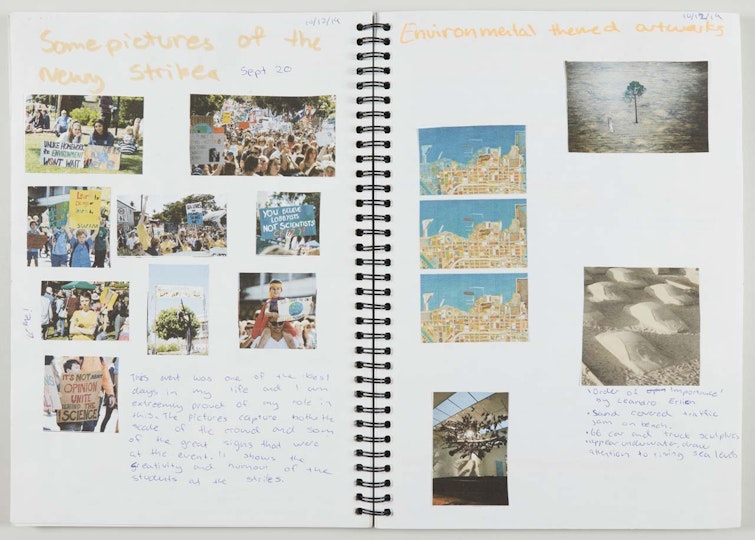 10/12/19
Some pictures of the
Newy Strikes Sept 20
UNLIKE HOMEWORK
the ENVIRONMENT
WON'T WAIT
SWIM
YOU BELIEVE
LOBBYISTS
NOT SCIENTISTS!
IT'S NOT ABOUT
OPINION
UNITE
BEHIND THE
SCIENCE
This event was one of the best
days in my life and I am
extremely proud of my role in
this. The pictures capture both the
scale of the crowd and som
of the great signs that were
at the event. It shows the
creativity and humour of the
students at the strikes.
10/12/19
Environmental themed artworks
'Order of Importance'
by Leandro Erlich
• Sand covered traffic
jam on beach.
• 66 car and truck sculptures
appear underwater, draw
attention to rising sea levels